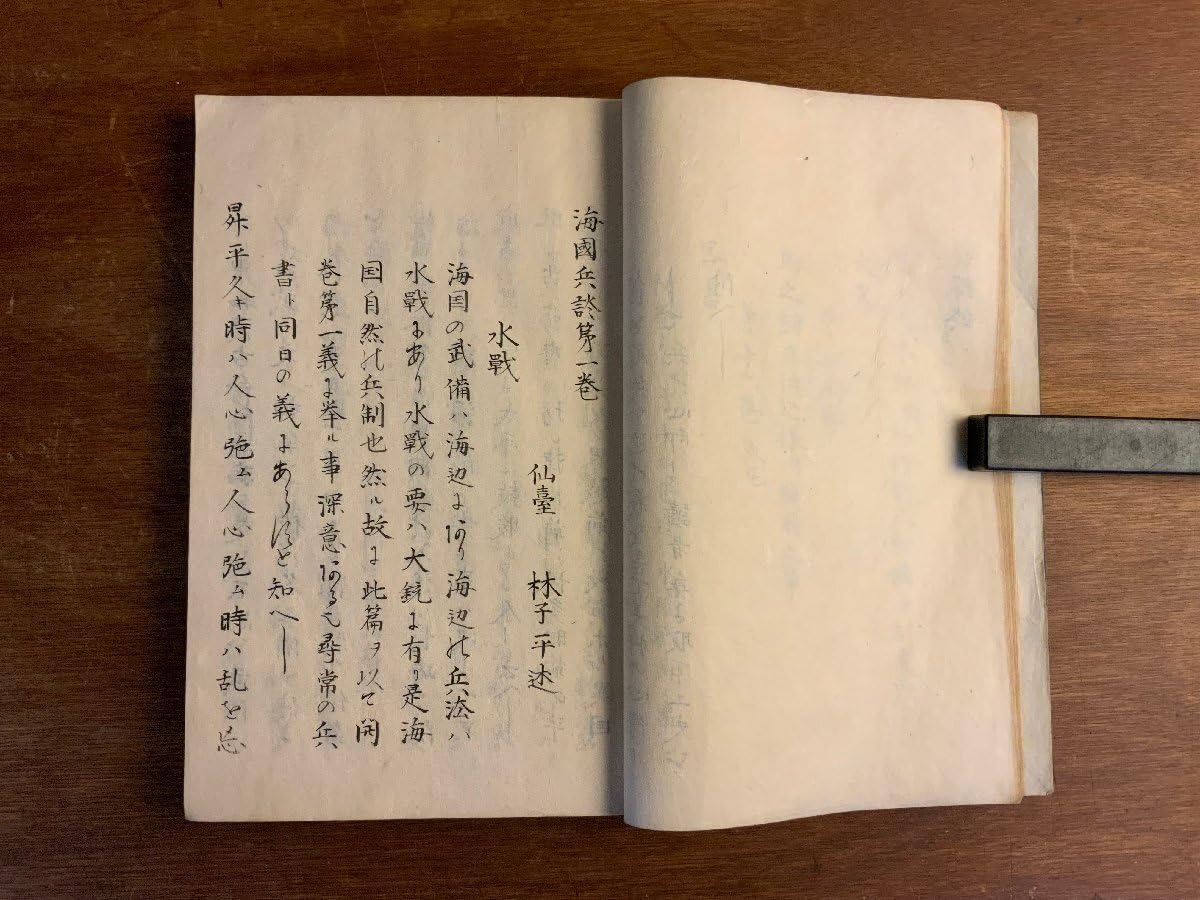 海國兵談第一巻
仙臺　林子平述
水戰
海国の武備ハ海辺にあり海辺の兵法ハ
水戰にあり水戰の要ハ大銃に有り是海
国自然の兵制也然ル故に此篇ヲ以て開
巻第一義に挙ル事深意あるなり尋常の兵
書ト同日の義にあらずと知へし
昇平久キ時ハ人心弛ム人心弛ム時ハ乱を忘